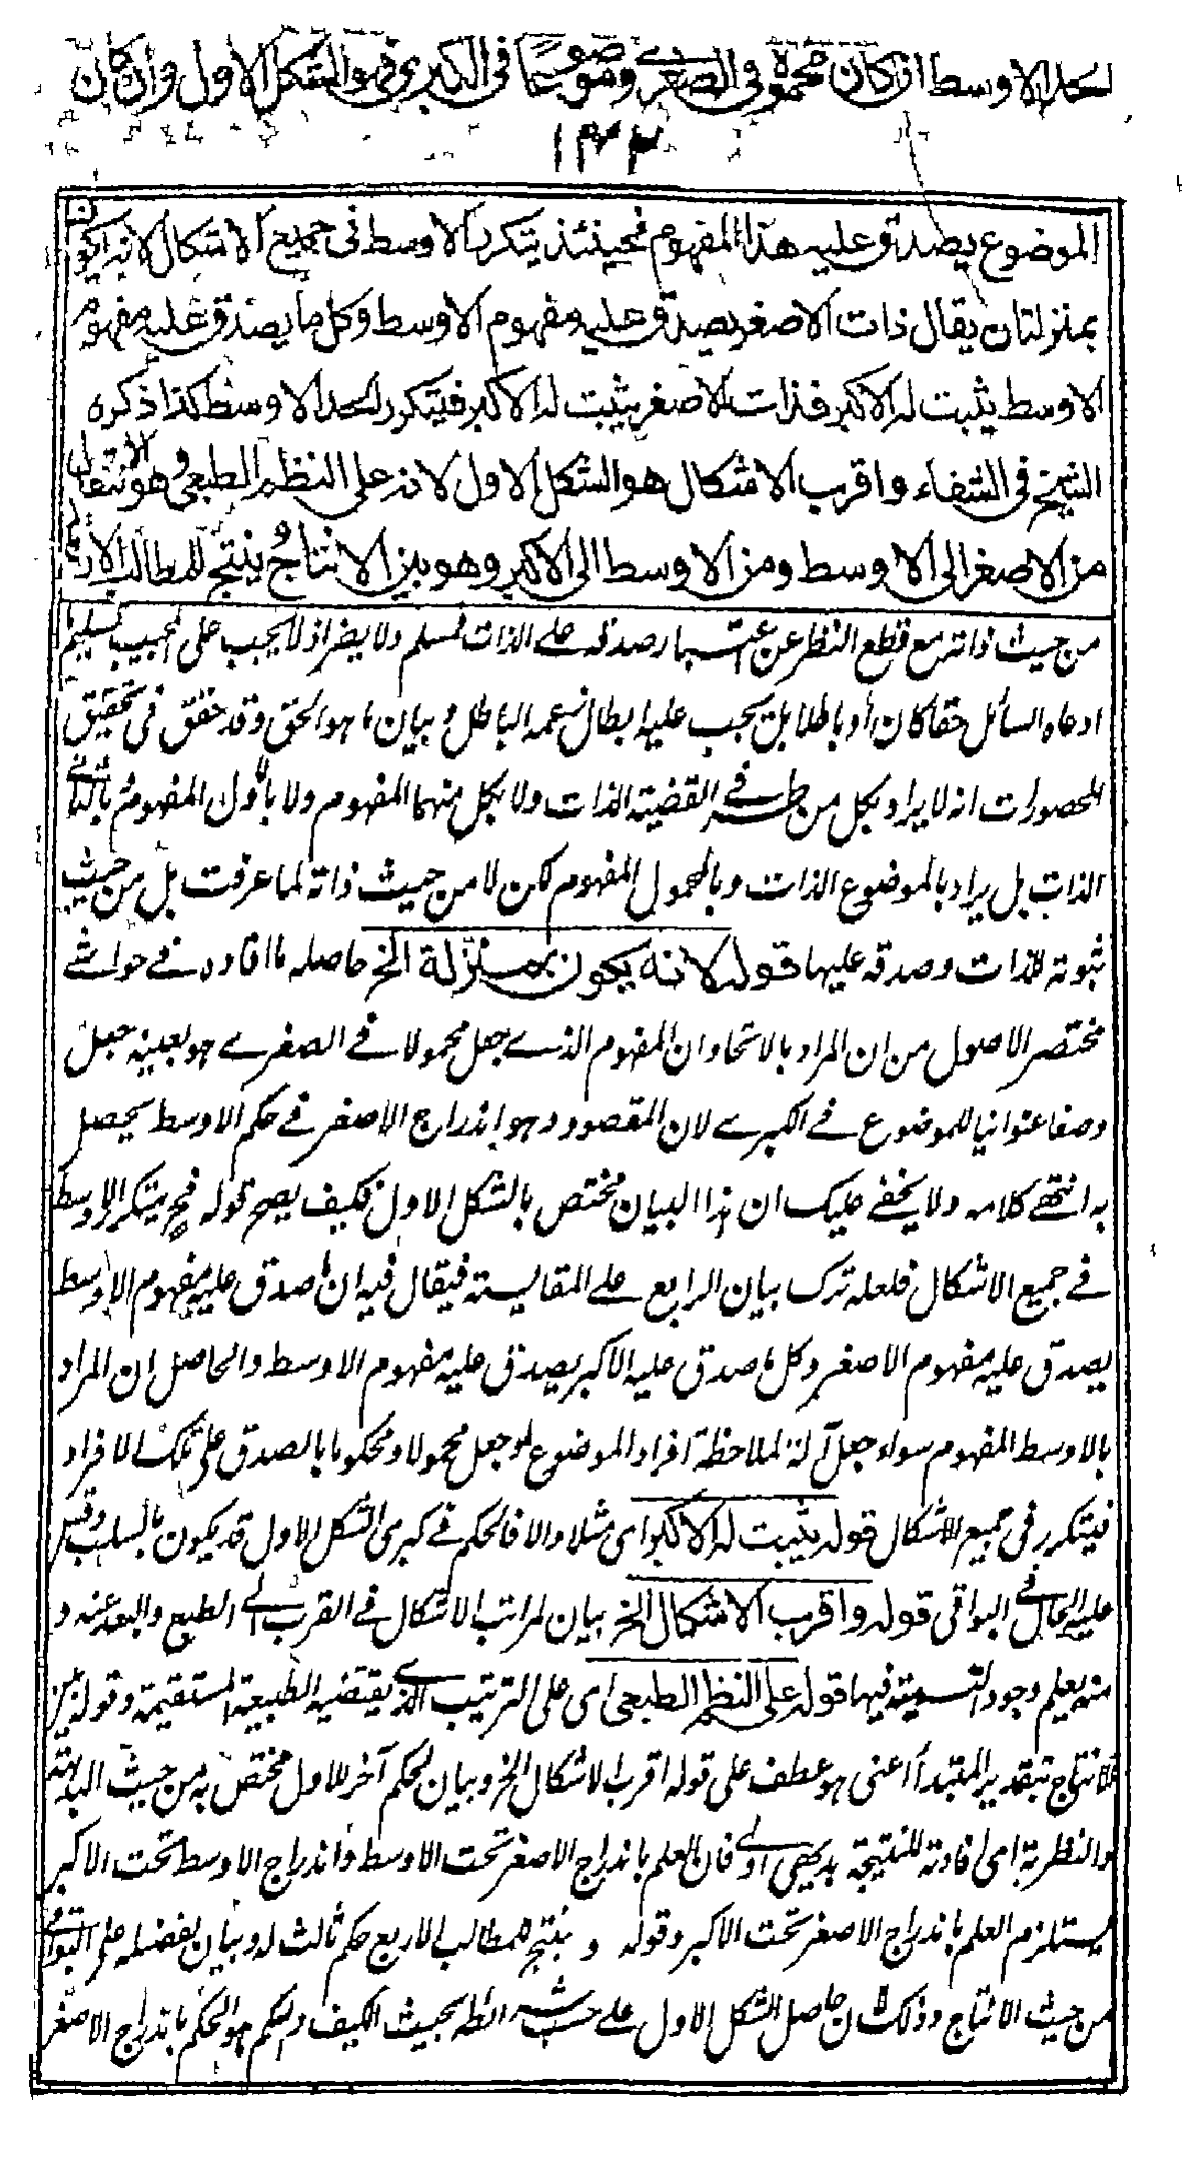 الحد الاوسط ان كان محمولا فى الصغرے وموضوعا فى الكبرى فهو الشكل الاول وان كان
١٤٣
الموضوع يصدق عليه هذا المفهوم فحينئذ يتكرر الاوسط فى جميع الاشكال لانه يكون
بمنزلة ان يقال ذات الاصغر يصدق عليه مفهوم الاوسط وكل ما يصدق عليه مفهوم
الاوسط يثبت له الاكبر فذات الاصغر يثبت له الاكبر فيتكرر الحد الاوسط كذا ذكره
الشيخ فى الشفاء واقرب الاشكال هو الشكل الاول لانه على النظم الطبعى وهو الانتقال
من الاصغر الى الاوسط ومن الاوسط الى الاكبر وهو بين الانتاج وينتج للمطالب الاربع
من حيث ذاته مع قطع النظر عن اعتبار صدقه علے الذات فمسلم ولا يضر اذ لا يجب على المجيب تسليم ما
ادعاه السائل حقا كان او باطلا بل يجب عليه ابطال زعمه الباطل وبيان ما هو الحق وقد حقق فى تحقيق
المحصورات انه لا يراد بكل من طرفے القضية الذات ولا بكل منهما المفهوم ولا بالاول المفهوم وبالثانے
الذات بل يراد بالموضوع الذات وبالمحمول المفهوم لكن لا من حيث ذاته لما عرفت بل من حيث
ثبوته للذات وصدقه عليها قوله لانه يكون بمنزلة الخ حاصله ما افاده فے حواشے
مختصر الاصول من ان المراد بالاتحاد ان المفهوم الذے جعل محمولا فے الصغرے هو بعينه جعل
وصفا عنوانيا للموضوع فے الكبرے لان المقصود وهو اندراج الاصغر فے حكم الاوسط يحصل
به انتهے كلامه ولا يخفے عليك ان هذا البيان مختص بالشكل الاول فكيف يصح قوله فح يتكرر الاوسط
فے جميع الاشكال فلعله ترك بيان الرابع علے المقايسة فيقال فيه ان ما صدق عليه مفهوم الاوسط
يصدق عليه مفهوم الاصغر وكل ما صدق عليه الاكبر يصدق عليه مفهوم الاوسط والحاصل ان المراد
بالاوسط المفهوم سواء جعل آلة لملاحظة افراد الموضوع او جعل محمولا ومحكوما بالصدق على تلك الافراد
فيتكرر فى جميع الاشكال قوله يثبت له الاكبر اى مثلا والا فالحكم فے كبرى الشكل الاول قد يكون بالسلب وقس
عليه الحال فے البواقى قوله واقرب الاشكال الخ بيان لمراتب الاشكال فے القرب الے الطبع والبعد عنه و
منه يعلم وجود التسمية فيها قوله على النظم الطبعى اى على الترتيب الذے يقتضيه الطبيعة المستقيمة وقوله بين
الانتاج بتقدير المبتدأ اعنى هو عطف على قوله اقرب الاشكال الخ وبيان لحكم آخر للاول مختص به من حيث البداهة
والنظرية اى افادته للنتيجة بديهى اولے فان العلم باندراج الاصغر تحت الاوسط واندراج الاوسط تحت الاكبر
يستلزم العلم باندراج الاصغر تحت الاكبر وقوله و ينتج للمطالب الاربع حكم ثالث له وبيان لفضله على البواقے
من حيث الانتاج وذلك ان حاصل الشكل الاول علے حسب شرائطه بحيث الكيف والكم هو الحكم باندراج الاصغر